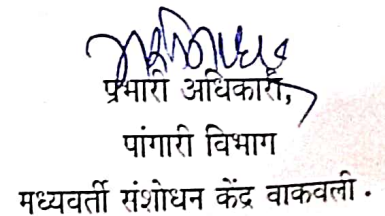 प्रभारी अधिकारी,
पांगारी विभाग
मध्यवर्ती संशोधन केंद्र वाकवली .